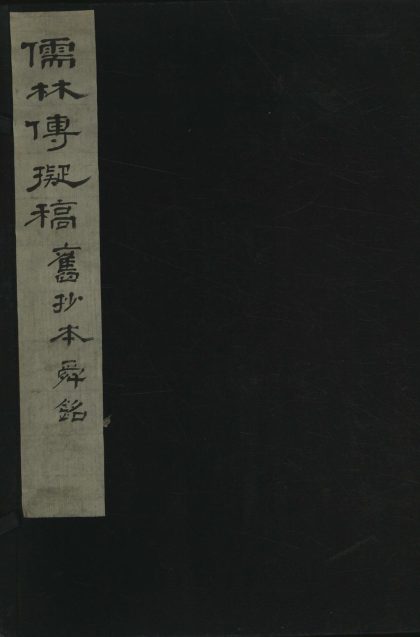 儒林傳擬稿舊抄本舜銘